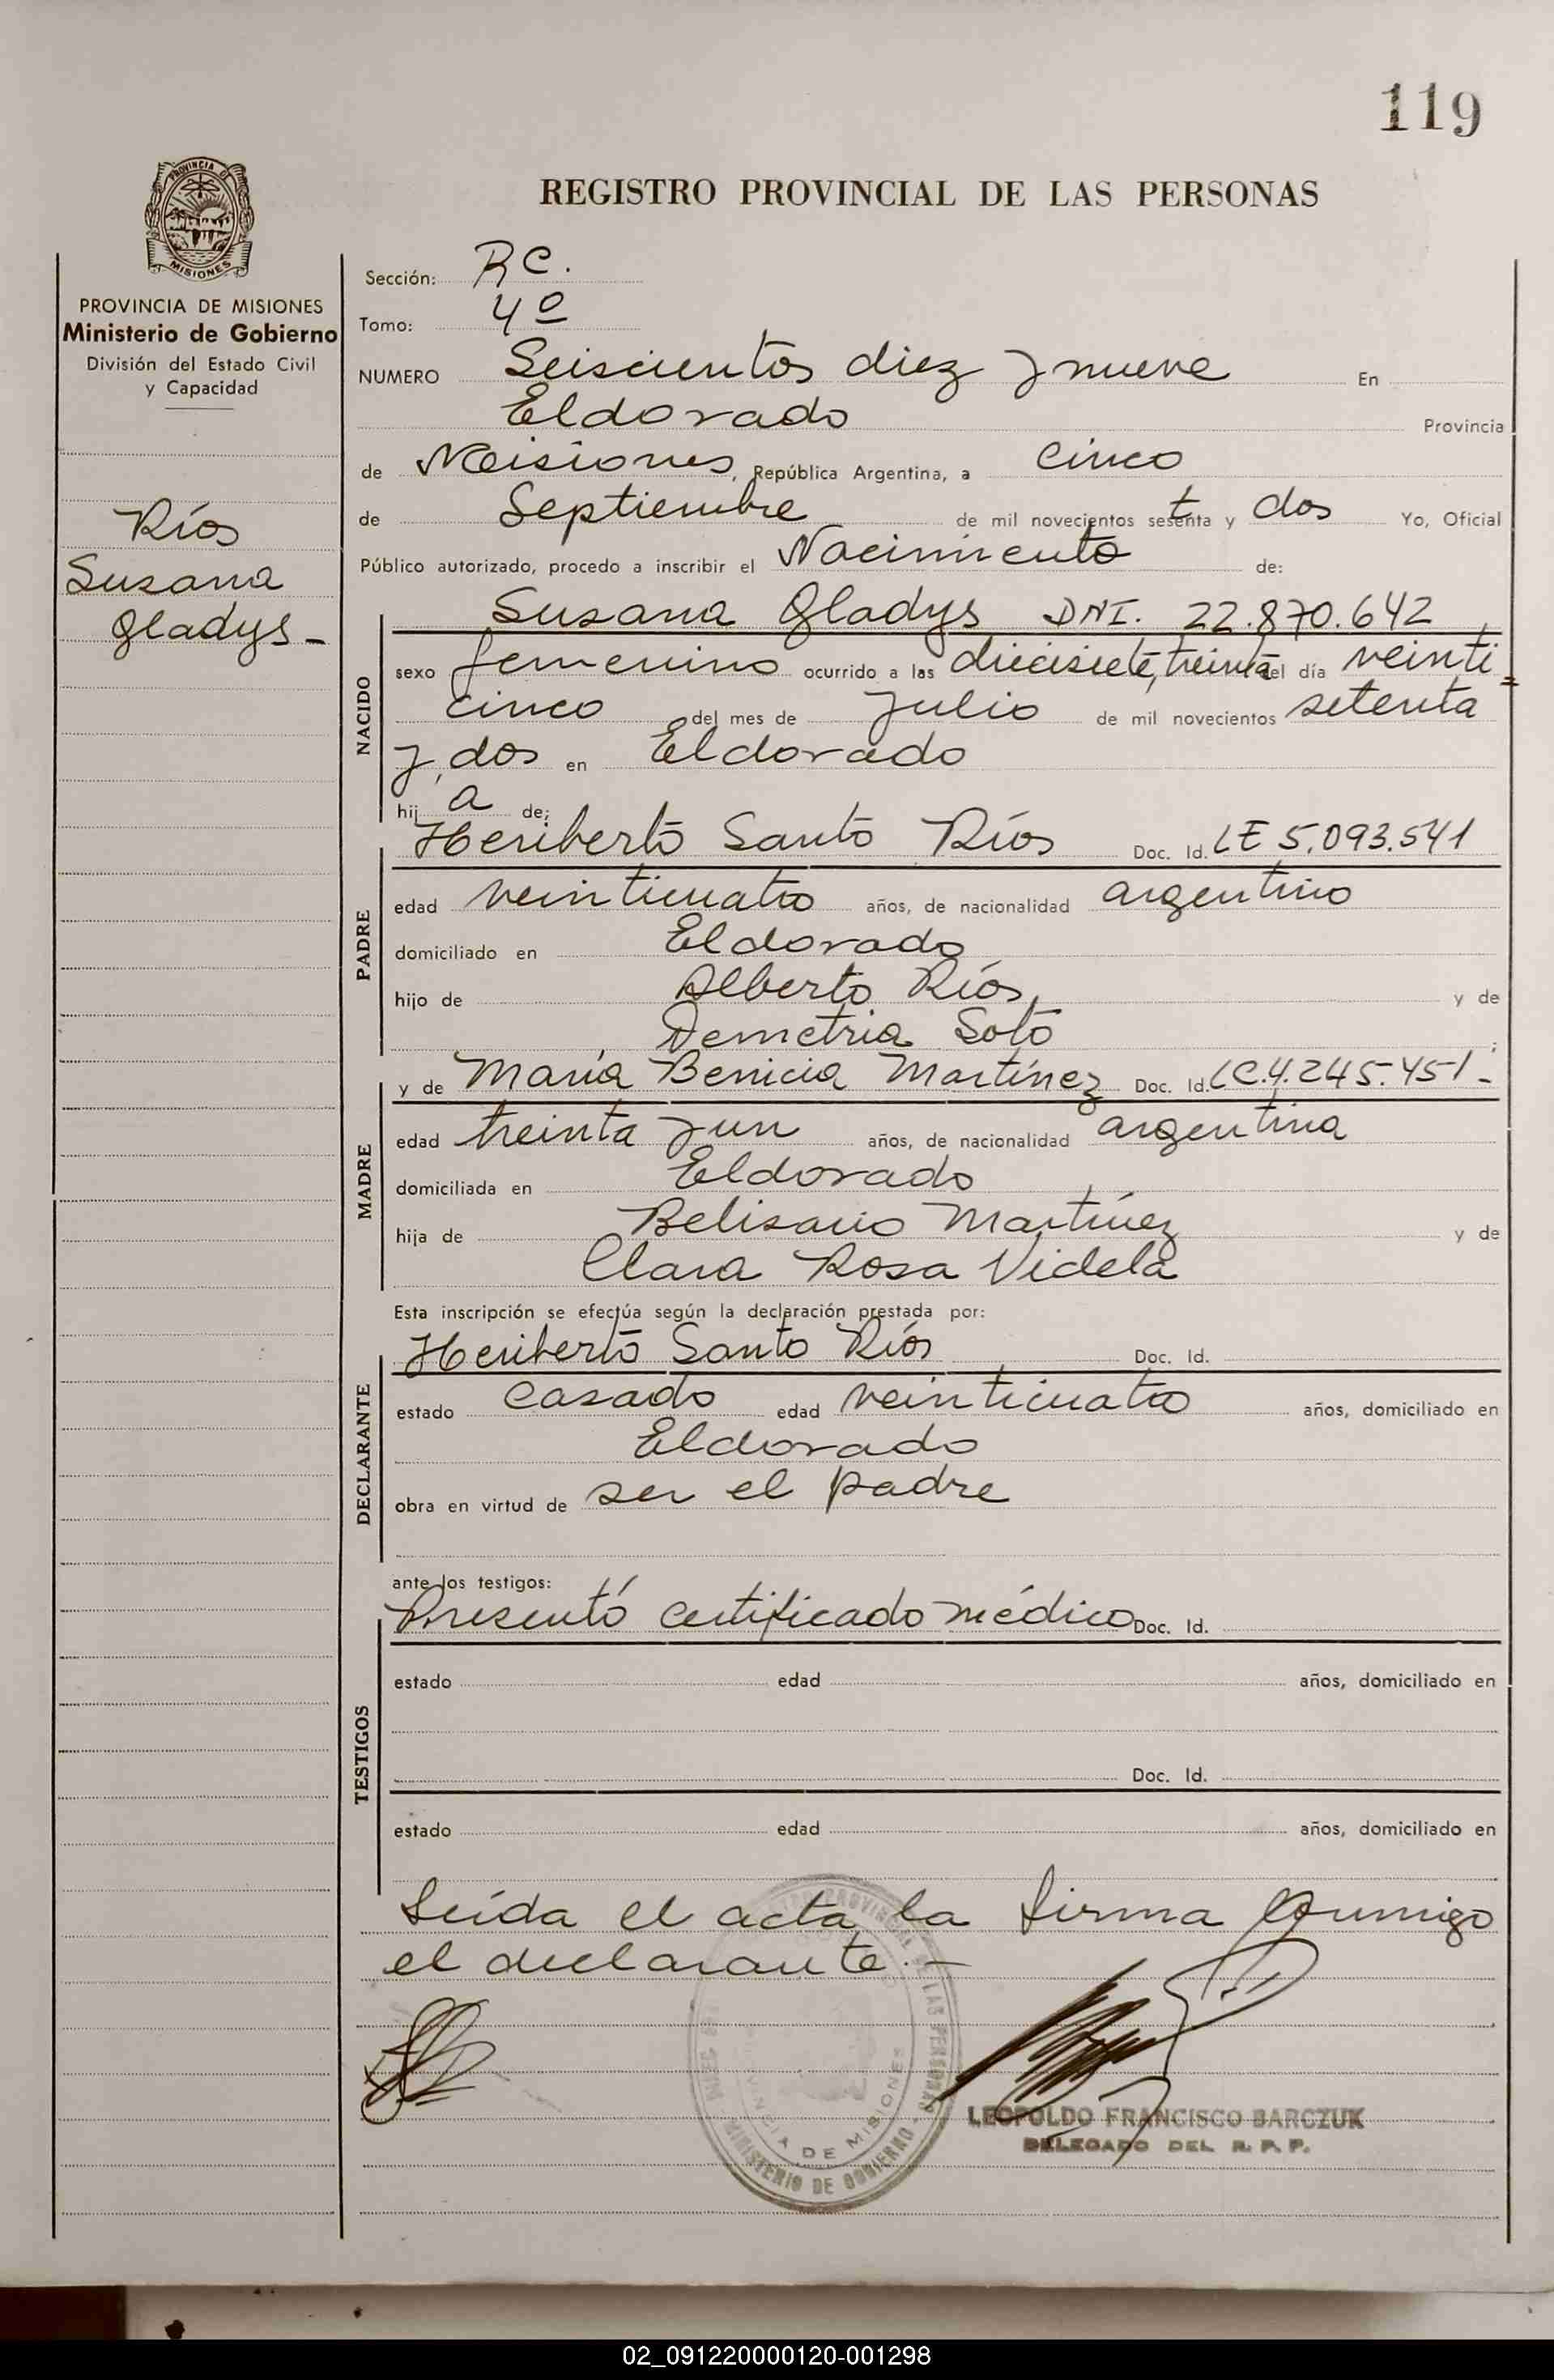 119
PROVINCIA DE
MISIONES
PROVINCIA DE MISIONES
Ministerio de Gobierno
División del Estado Civil
y Capacidad
Ríos
Susana
Gladys -
REGISTRO PROVINCIAL DE LAS PERSONAS
Sección: RC.
Tomo: 4º
NUMERO Seiscientos diez y nueve En
Eldorado Provincia
de Misiones, República Argentina, a cinco
de Septiembre de mil novecientos setenta y dos Yo, Oficial
Público autorizado, procedo a inscribir el Nacimiento de:
Susana Gladys DNI. 22.870.642
NACIDO
sexo femenino ocurrido a las diecisiete, treinta del día veinti=
cinco del mes de Julio de mil novecientos setenta
y dos en Eldorado
hij a de;
Heriberto Santo Ríos Doc. Id. LE 5.093.541
PADRE
edad veinticuatro años, de nacionalidad argentino
domiciliado en Eldorado
hijo de Alberto Ríos, y de
Demetria Soto ;
y de María Benicia Martínez Doc. Id. LC.4.245.451.-
MADRE
edad treinta y un años, de nacionalidad argentina
domiciliada en Eldorado
hija de Belisario Martínez y de
Clara Rosa Videla
Esta inscripción se efectúa según la declaración prestada por:
Heriberto Santo Ríos Doc. Id.
DECLARANTE
estado casado edad veinticuatro años, domiciliado en
Eldorado
obra en virtud de ser el padre
ante los testigos:
Presentó certificado médico Doc. Id.
TESTIGOS
estado edad años, domiciliado en
Doc. Id.
estado edad años, domiciliado en
Leída el acta la firma conmigo
el declarante.-
PROVINCIAL DE LAS PERSONAS
MINISTERIO DE GOBIERNO
PROVINCIA DE MISIONES
LEOPOLDO FRANCISCO BARCZUK
DELEGADO DEL R. P. P.
02_091220000120-001298